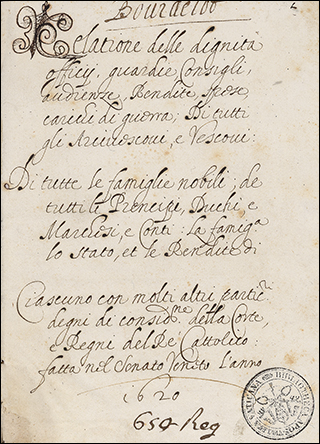 Relatione delle dignita
officij, guardie Consigli,
audienze, Rendite, spese,
carichi di guerra; Di tutti
gli Arciuescoui, e Vescoui:
Di tutte le famiglie nobili; de
tutti li Prencipi, Duchi e
Marchesi, e Conti: La famiga
lo stato, et le Rendite di
Ciascuno con molti altri particri
degni di considne della Corte
e Regni del Re Cattolico:
fatta nel Senato Veneto l'anno
1620
659 Reg
BIBLIOTHECA APOSTOLICA VATICANA